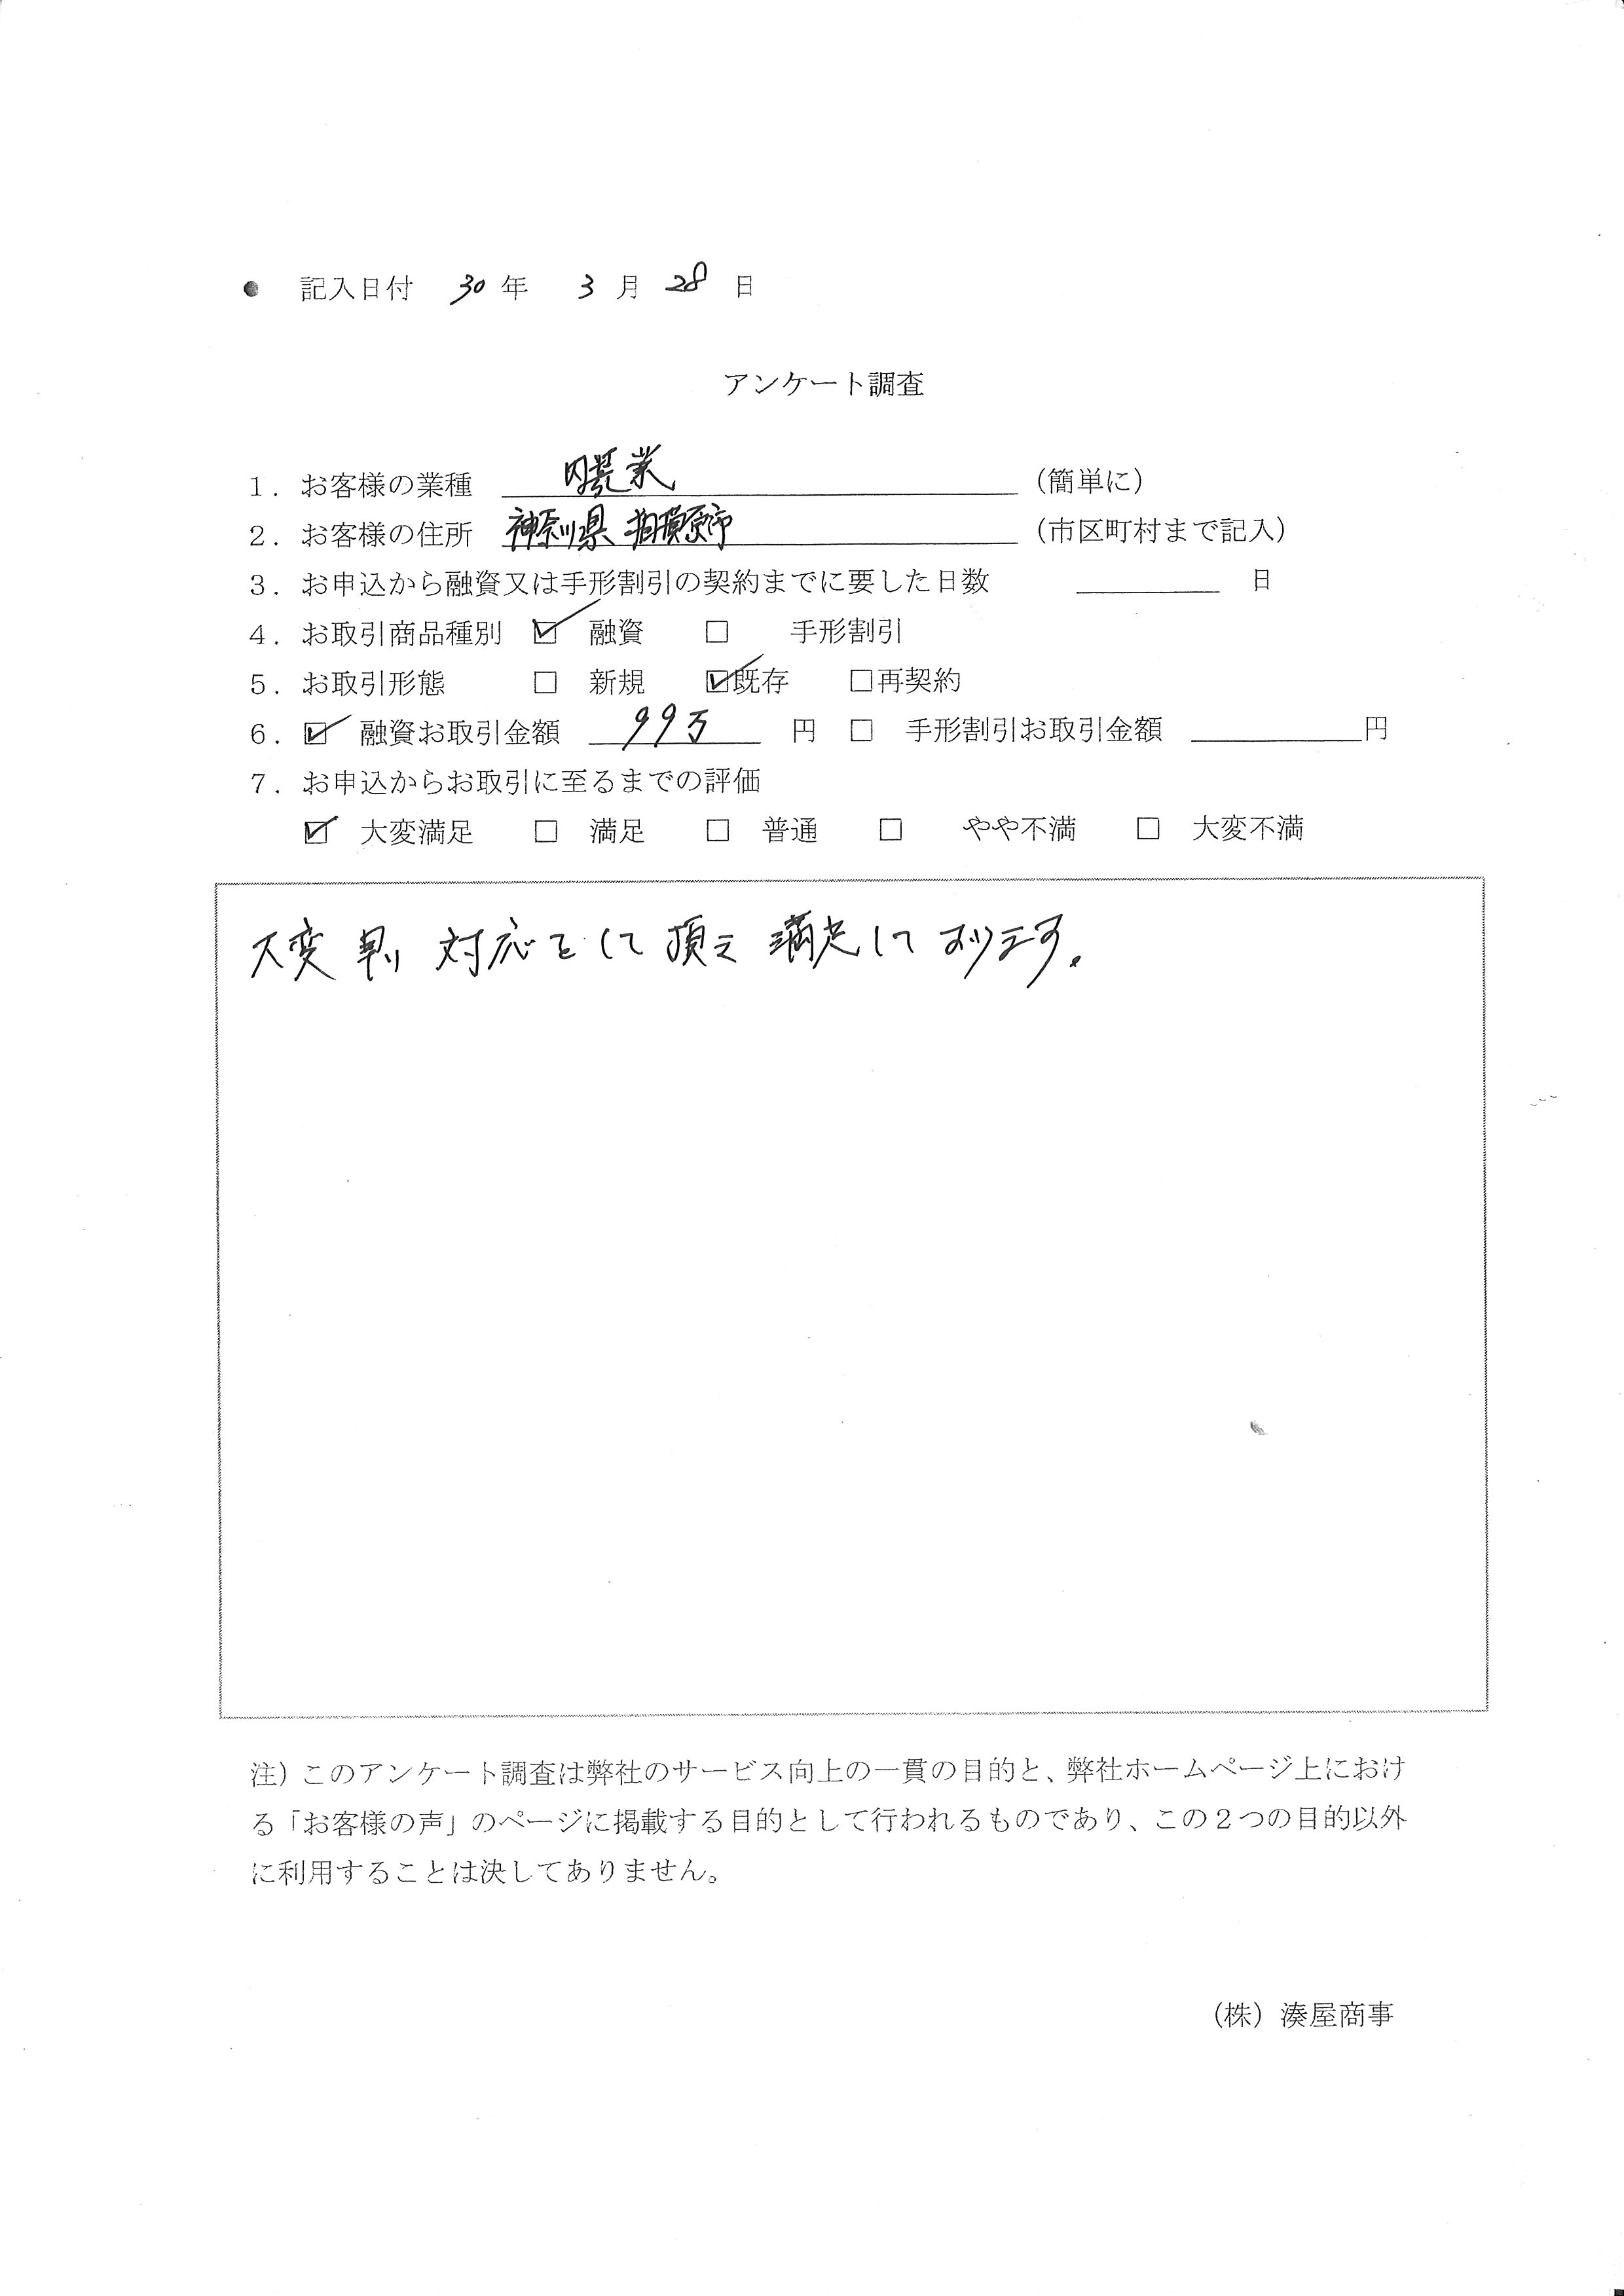 ● 記入日付 30年 3月 28日
アンケート調査
1．お客様の業種 業 （簡単に）
2．お客様の住所 神奈川県 相模原市 （市区町村まで記入）
3．お申込から融資又は手形割引の契約までに要した日数 ＿＿＿ 日
4．お取引商品種別 ☑ 融資 □ 手形割引
5．お取引形態 □ 新規 ☑既存 □再契約
6．☑ 融資お取引金額 99万 円 □ 手形割引お取引金額 ＿＿＿円
7．お申込からお取引に至るまでの評価
☑ 大変満足 □ 満足 □ 普通 □ やや不満 □ 大変不満
大変早い対応をして頂き満足しております。
注）このアンケート調査は弊社のサービス向上の一貫の目的と、弊社ホームページ上におけ
る「お客様の声」のページに掲載する目的として行われるものであり、この２つの目的以外
に利用することは決してありません。
（株）湊屋商事